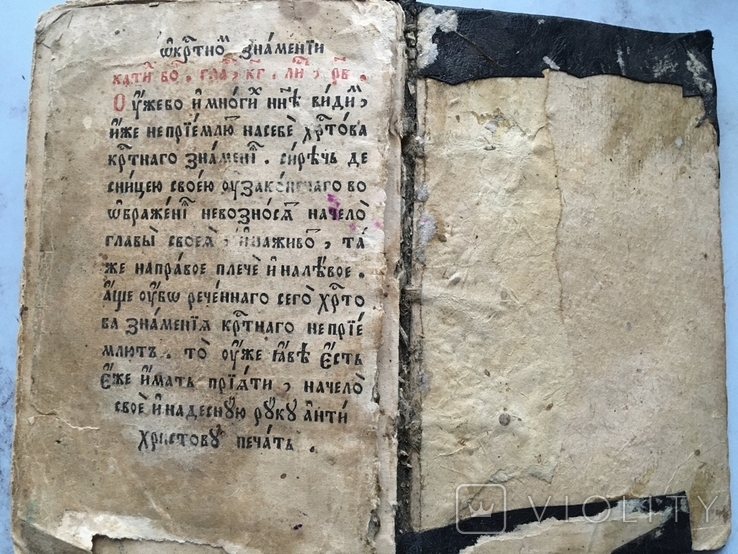 Ѡкрⷭ҇тноⷨ знаменїи
кати́ бо҃ . гла̀ , к҃г . ли́ , р҃в .
Оу҆жебо и҆мно́ги ннѣ̀ ви́ди ,
и҆́же непрїе́млю насебѐ хрⷭ҇то́ва
крⷭ҇тнаго зна́менїѧ . си́рѣчь де
сни́цею своѐю оу҆зако́нечаго во
ѡ҆браже́нїи невозно́сѧ начело̀
главы̀ своеѧ̀ , и҆наживо̀ , та́
же напра́вое плечѐ и҆налѣ́вое .
а҆́ще оу҆́бѡ рече́ннаго сего̀ хрⷭ҇то́
ва зна́менїѧ крⷭ҇тнаго непрїе́
млютъ . то̀ оу҆жѐ ꙗ҆́вѣ є҆́сть
є҆́же и҆́мать прїѧ́ти , начело̀
своѐ и҆надеснꙋ́ю рꙋ́кꙋ а҆нти
хри́стовꙋ печа́ть .
VIOLITY